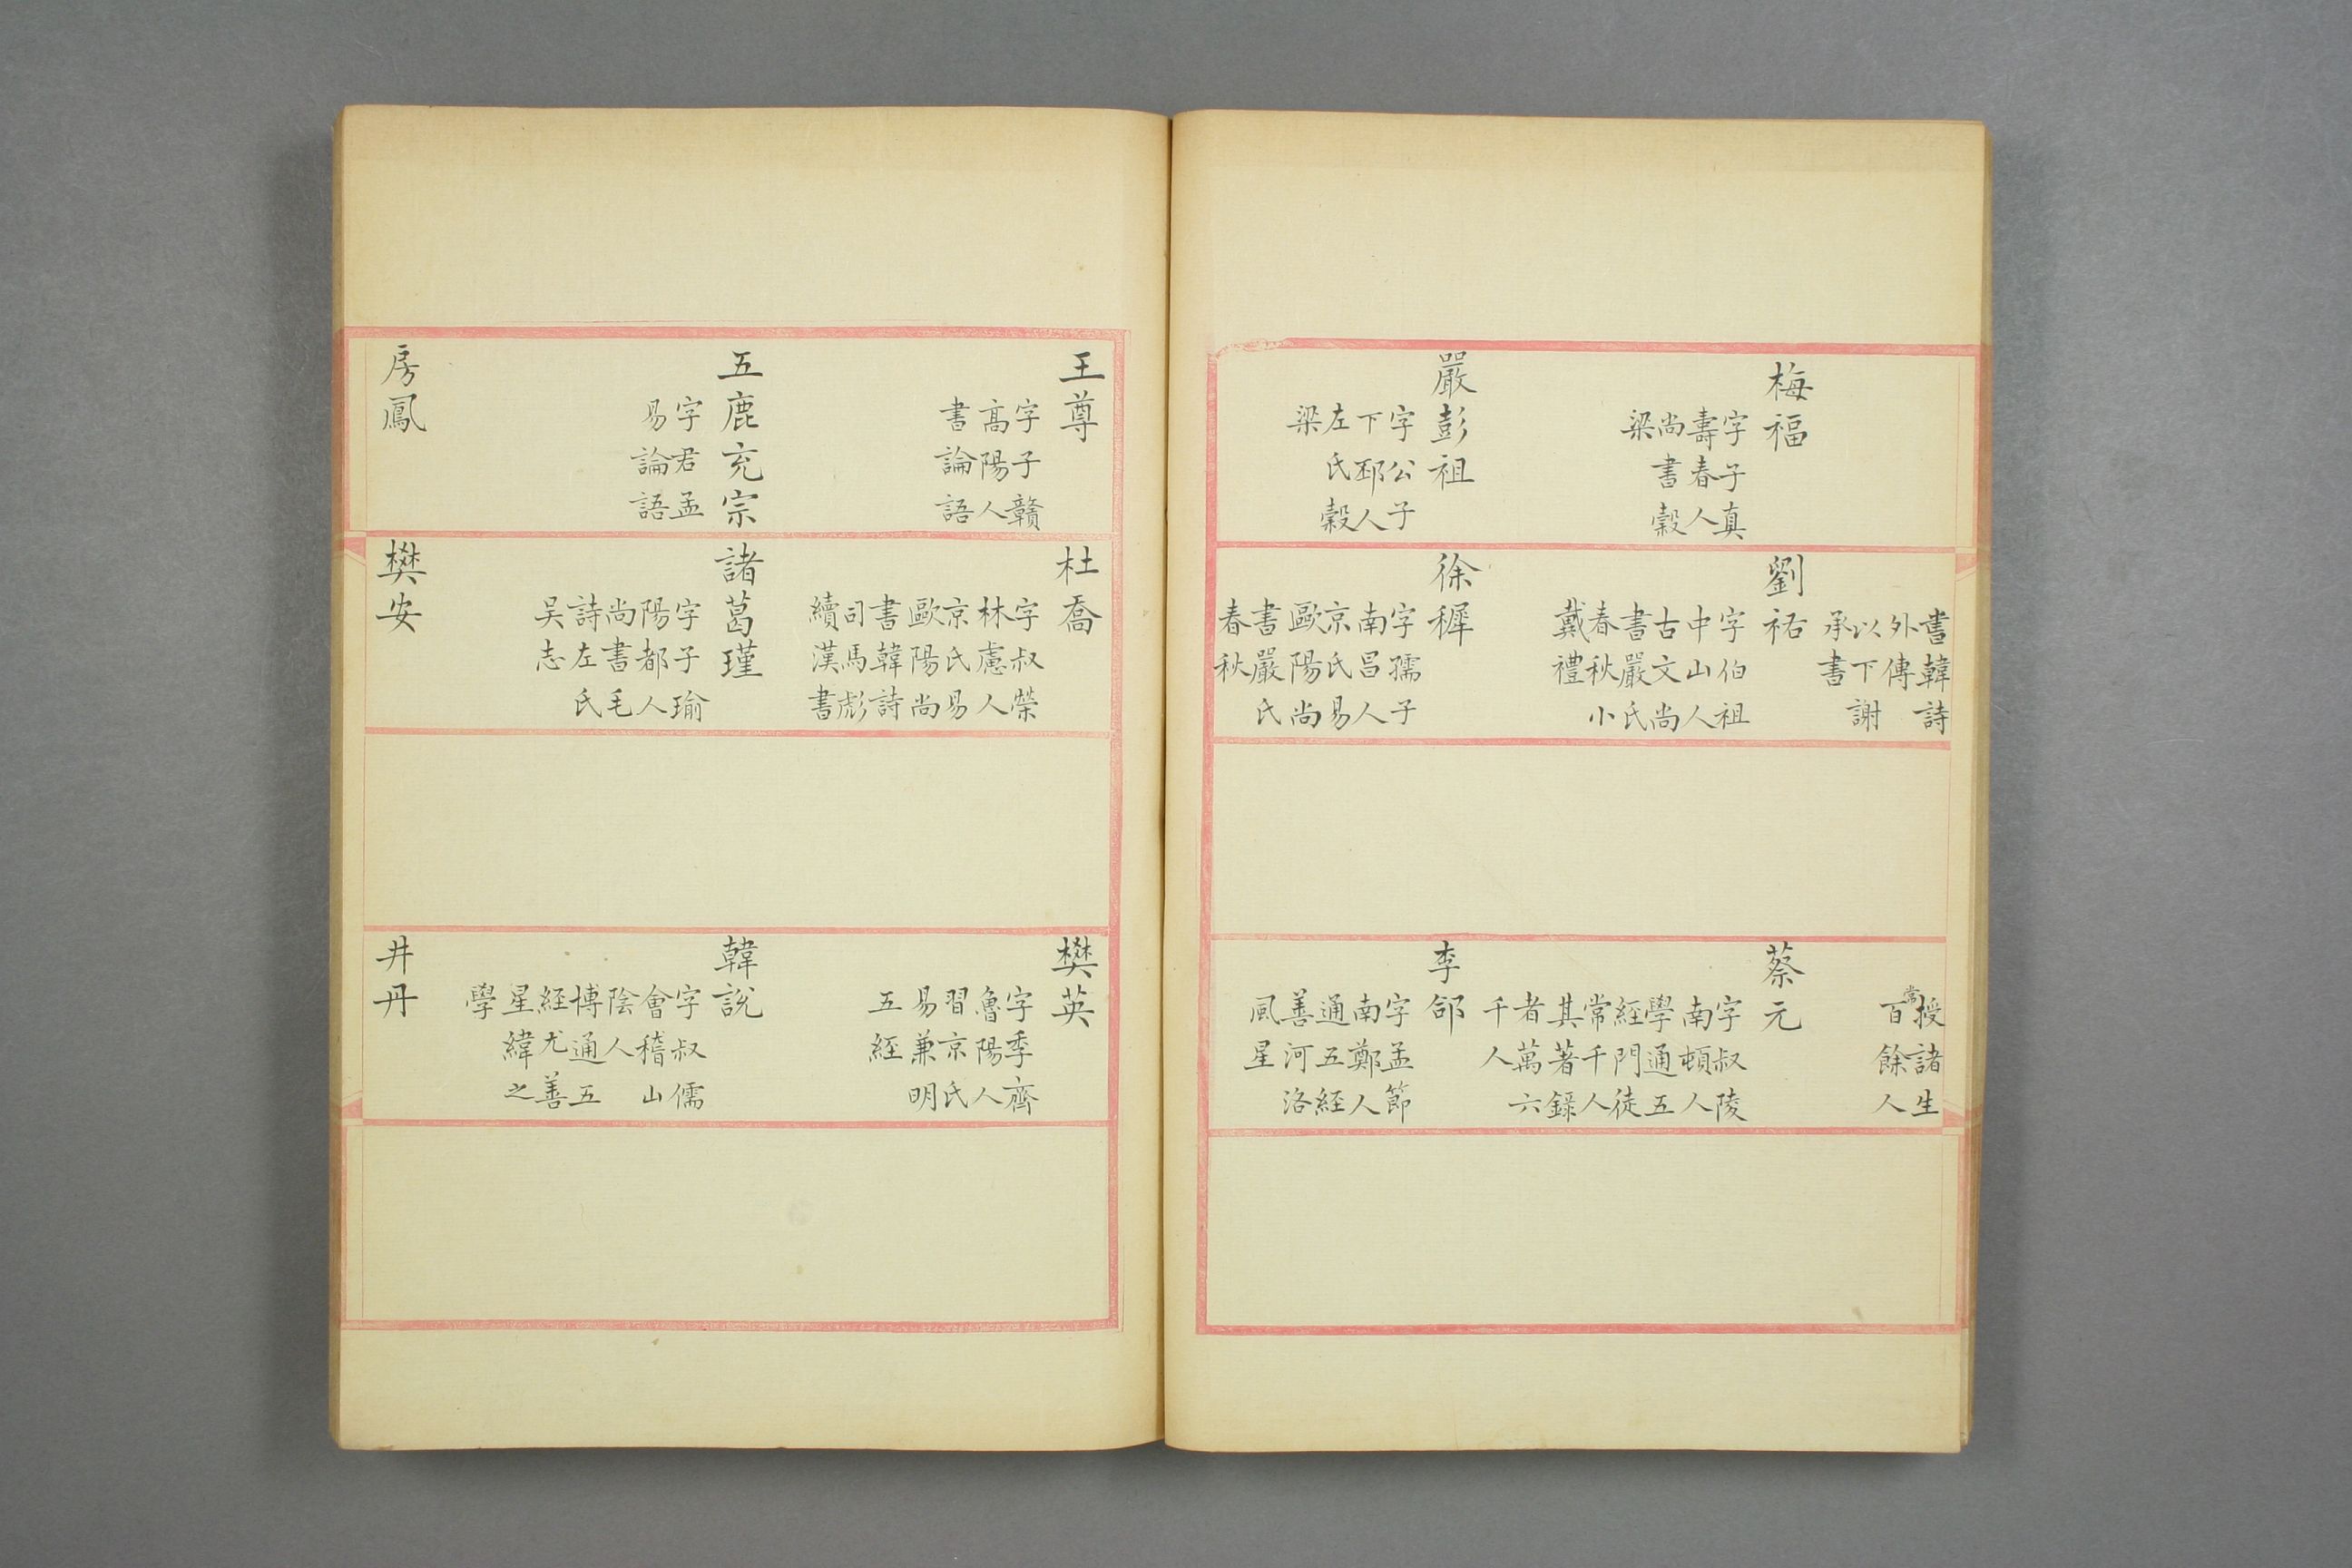 梅福
字子真
壽春人
尚書穀
梁
嚴彭祖
字公子
下邳人
左氏穀
梁
書韓詩
外傳
以下謝
承書
劉祐
字伯祖
中山人
古文尚
書嚴氏
春秋小
戴禮
徐穉
字孺子
南昌人
京氏易
歐陽尚
書嚴氏
春秋
授諸生
常百餘人
蔡元
字叔陵
南頓人
學通五
經門徒
常千人
其著錄
者萬六
千人
李郃
字孟節
南鄭人
通五經
善河洛
風星
王尊
字子贛
高陽人
書論語
五鹿充宗
字君孟
易論語
房鳳
杜喬
字叔榮
林慮人
京氏易
歐陽尚
書韓詩
司馬彪
續漢書
諸葛瑾
字子瑜
陽都人
尚書毛
詩左氏
吳志
樊安
樊英
字季齊
魯陽人
習京氏
易兼明
五經
韓說
字叔儒
會稽山
陰人
博通五
經尤善
星緯之
學
井丹